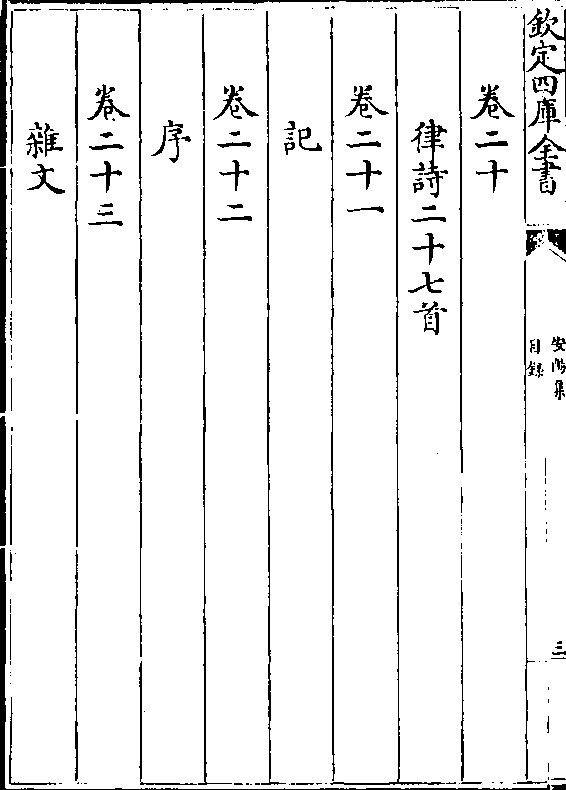 欽定四庫全書
安陽集
目録
三
卷二十
律詩二十七首
卷二十一
記
卷二十二
序
卷二十三
雜文